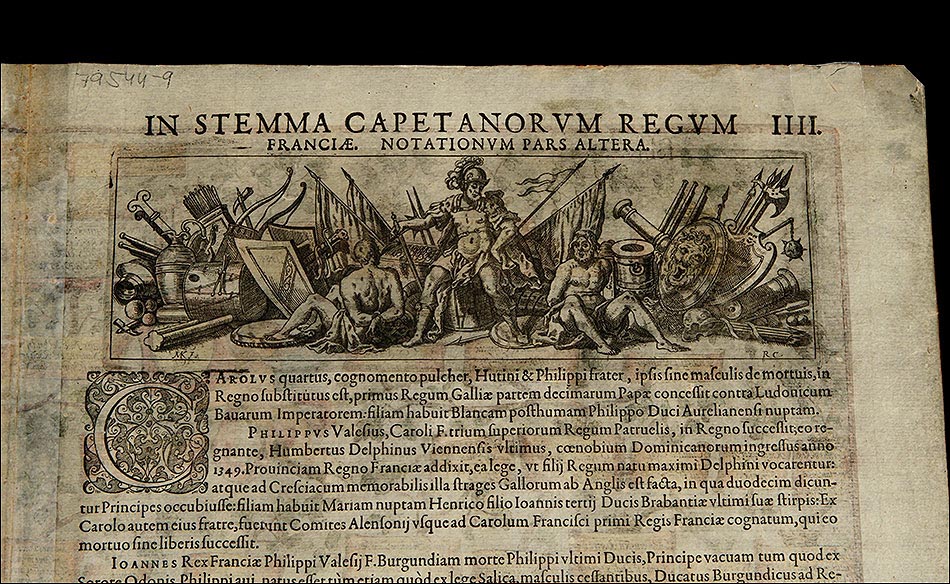 79544-9
IN STEMMA CAPETANORVM REGVM IIII.
FRANCIÆ. NOTATIONVM PARS ALTERA.
R C.
CAROLVS quartus, cognomento pulcher, Hutini & Philippi frater, ipsis sine masculis de mortuis, in
Regno substitutus est, primus Regum Galliæ partem decimarum Papæ concessit contra Ludonicum
Bauarum Imperatorem: filiam habuit Blancam posthumam Philippo Duci Aurelianensi nuptam.
PHILIPPVS Valesius, Caroli F. trium superiorum Regum Patruelis, in Regno successit; eo re-
gnante, Humbertus Delphinus Viennensis vltimus, cœnobium Dominicanorum ingressus anno
1349. Prouinciam Regno Franciæ addixit, ea lege, vt filij Regum natu maximi Delphini vocarentur:
atque ad Cresciacum memorabilis illa strages Gallorum ab Anglis est facta, in qua duodecim dicun-
tur Principes occubuisse: filiam habuit Mariam nuptam Henrico filio Ioannis tertij Ducis Brabantiæ vltimi suæ stirpis: Ex
Carolo autem eius fratre, fuerunt Comites Alensonij vsque ad Carolum Francisci primi Regis Franciæ cognatum, qui eo
mortuo sine liberis successit.
IOANNES Rex Franciæ Philippi Valesij F. Burgundiam morte Philippi vltimi Ducis, Principe vacuam tum quod ex
Sorore Odonis Philippi aui, natus esset tùm etiam quòd ex lege Salica, masculis cessantibus, Ducatus Burgundicus ad Re-